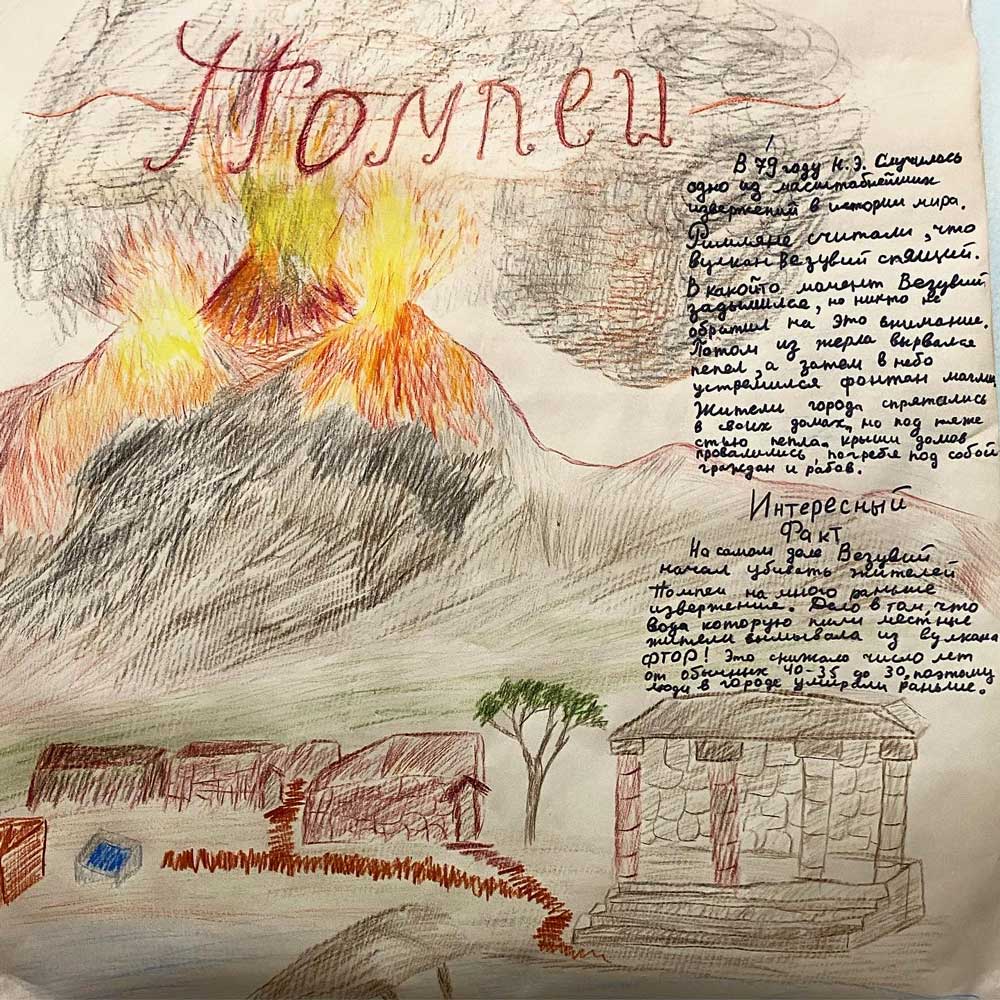 Помпеи
В 79 году н.э. Случилось
одно из масштабнейших
извержений в истории мира.
Римляне считали, что
вулкан Везувий спящий.
В какойто момент Везувий
задымился, но никто не
обратил на это внимание.
Потом из жерла вырвался
пепел, а затем в небо
устремился фонтан магмы
Жители города спрятались
в своих домах, но под тяже
стью пепла крыши домов
провалились, погребя под собой
граждан и рабов.
Интересный
Факт
На самом деле Везувий
начал убивать жителей
Помпеи на много раньше
извержение. Дело в том, что
вода которую пили местные
жители вымывала из вулкана
ФТОР! Это снижало число лет
от обычных 40-35 до 30, поэтому
люди в городе умирали раньше.